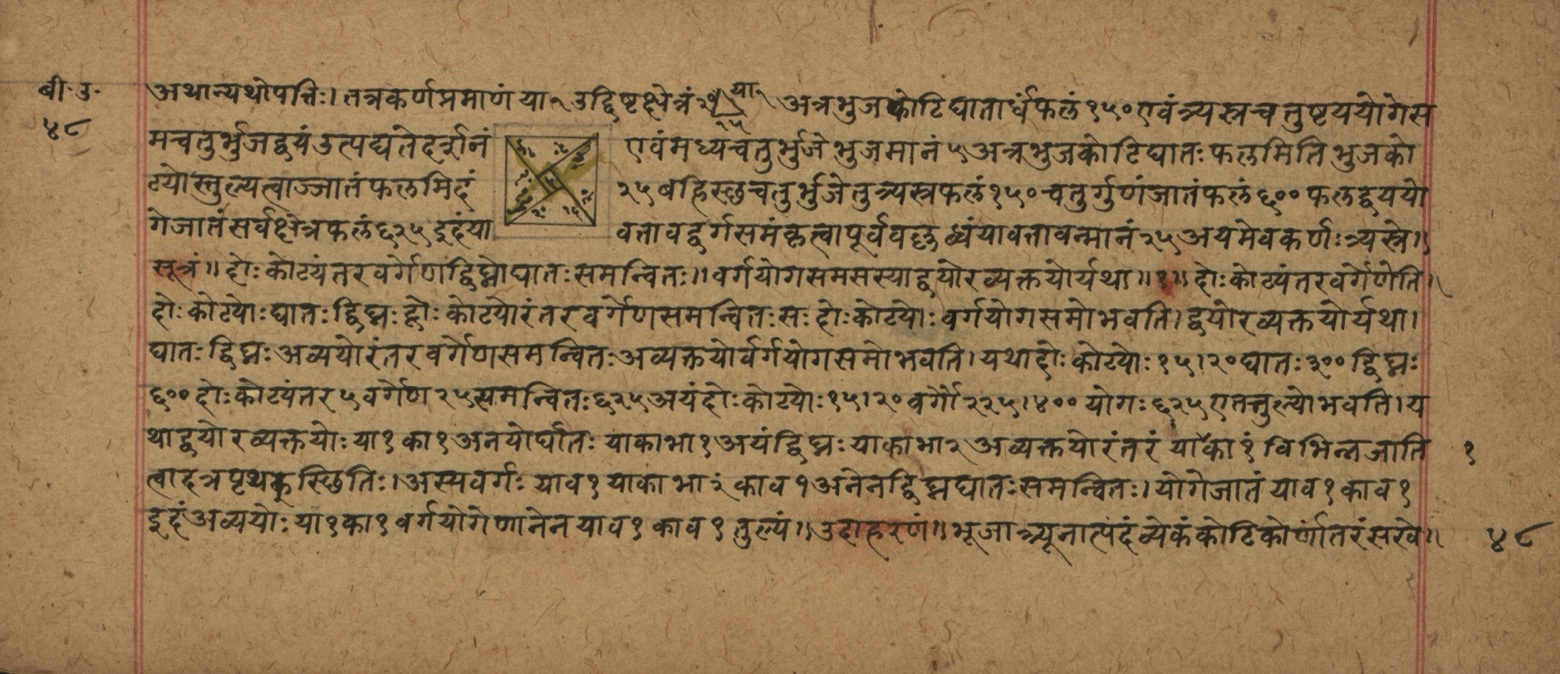 बी॰उ॰
४८
अथान्यथोपत्तिः। तत्रकर्णप्रमाणं या१ उद्दिष्टक्षेत्रं अत्रभुजकोटिघातार्धंफलं१५०एवंत्र्यस्त्रचतुष्टययोगेस
मचतुर्भुजद्वयंउत्पद्यतेदर्शनं एवंमध्यचतुर्भुजेभुजमानं५अत्रभुजकोटिघातःफलमितिभुजको
ट्योस्तुल्यत्वाज्जातंफलमिदं २५बहिस्छचतुर्भुजेतुत्र्यस्त्रफलं१५०चतुर्गुणंजातंफलं६००फलद्वययो
गेजातंसर्वक्षेत्रफलं६२५इदंया वत्तावद्वर्गसमंकृत्वापूर्ववछब्धंयावत्तावन्मानं२५अयमेवकर्णःत्र्यस्त्रे॥
सूत्रं॥दोःकोट्यंतरवर्गेणद्विघ्नोघातःसमन्वितः॥वर्गयोगसमसस्याद्वयोरव्यक्तयोर्यथा॥१॥दोःकोट्यंतरवर्गेणेति॥
दोःकोट्योःघातःद्विघ्नःद्दोःकोट्योरंतरवर्गेणसमन्वितःसःदोःकोट्योःवर्गयोगसमोभवति।द्वयोरव्यक्तयोर्यथा।
घातःद्विघ्नःअव्ययोरंतरवर्गेणसमन्वितःअव्यक्तयोर्वर्गयोगसमोभवति।यथादोःकोट्योः१५।२०घातः३००द्विघ्नः
६००दोःकोट्यंतर५वर्गेण२५समन्वितः६२५अयंदोःकोट्योः१५।२०वर्गौ२२५।४००योगः६२५एतत्तुल्योभवति।य
थाद्वयोरव्यक्तयोःया१का१अनयोर्घातःयाकाभा१अयंद्विघ्नःयाकाभा२अव्यक्तयोरंतरंया१का१ंविभिन्नजाति १
त्वादत्रपृथक्स्छितिः।अस्यवर्गःयाव१याकाभा२ंकाव१अनेनद्विघ्नघातःसमन्वितः।योगेजातंयाव१काव१
इदंअव्ययोःया१का१वर्गयोगेणानेनयाव१काव१तुल्यं॥उदाहरणं॥भूजात्र्यूनात्पदंव्येकंकोटिकोर्णांतरंसखे॥
४८